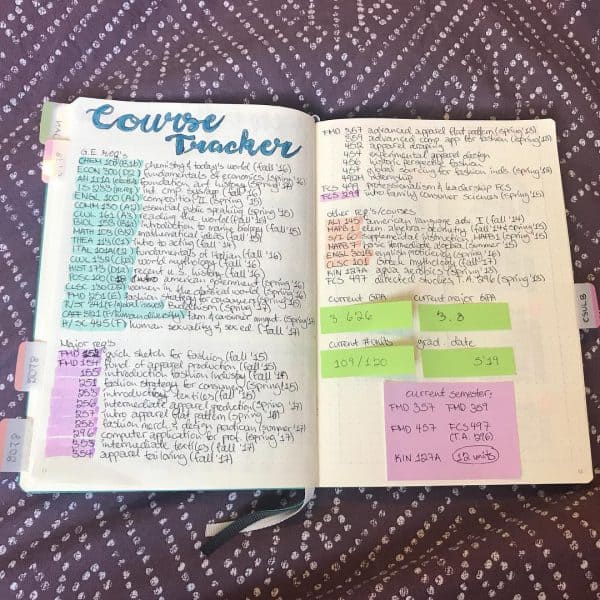 Course
Tracker
G.E. Req's
CHEM 100 (B1b) chemistry & today's world (fall '16)
ECON 300 (D2) fundamentals of economics (spring '16)
AH 111A foundation art history (spring '17)
ENGL 100 (A1) composition II (spring '15)
COMM 130 (A2) essential public speaking (spring '15)
CWL 161 (A3) reading the world (fall '16)
BIOL 153 introduction to marine biology (fall '15)
MATH 103 (B2) mathematical ideas (fall '15)
THEA 113 (C1) intro to acting (fall '14)
ITAL 101A (C2) fundamentals of Italian (fall '16)
CWL 132 world mythology (fall '16)
HIST 173 (D1a) recent U.S. history (fall '16)
POSC intro american government (spring '16)
CLSC women in the classical world (spring '16)
FMD 251 fashion strategy for consumers (spring '15)
R/ST 341 (F/global issues) Buddhism (spring '17)
CAFF fam & consumer
H/SC 425 (F) human sexuality & sex ed. (fall '17)
Major req's
FMD quick sketch for fashion (fall '15)
FMD 154 fund. of apparel production (fall '15)
155 introduction fashion industry (fall '14)
251 fashion strategy for consumers (spring '15)
253 introductory textiles (fall '15)
256 intermediate apparel production (spring '16)
257 intro apparel flat pattern (spring '18)
fashion merch & design (summer '17)
296 computer application for prof. (spring '17)
353 intermediate textiles (fall '17)
354 apparel tailoring (fall '17)
FMD 357 advanced apparel flat pattern (spring '18)
359 advanced comp app for fashion (spring '18)
452 apparel draping
454 experimental apparel design
456 historic perspective fashion
457 global sourcing for fashion inds. (spring '18)
492M internship
FCS 499 professionalism & leadership FCS
FCS 299 intro family consumer sciences (spring '15)
other req's/courses
ASL american sign language I (fall '14)
MAPB 1 elem algebra-geometry (fall '14, spring '15)
S/I 60 supplemental instruction MAPB 1 (spring '15)
MAPB 7 basic intermediate algebra (summer '15)
ENGL 301B english proficiency (spring '16)
CLSC 101 Greek mythology (fall '17)
KIN 127A aqua aerobics (spring '18)
FCS 497 directed studies T.A. 296 (spring '18)
current GPA current major GPA
3.626 3.8
current #units grad. date
109/120 S'19
current semester:
FMD 357 FMD 359
FMD 457 FCS 497
(T.A. 296)
KIN 127A 12 units
CSULB